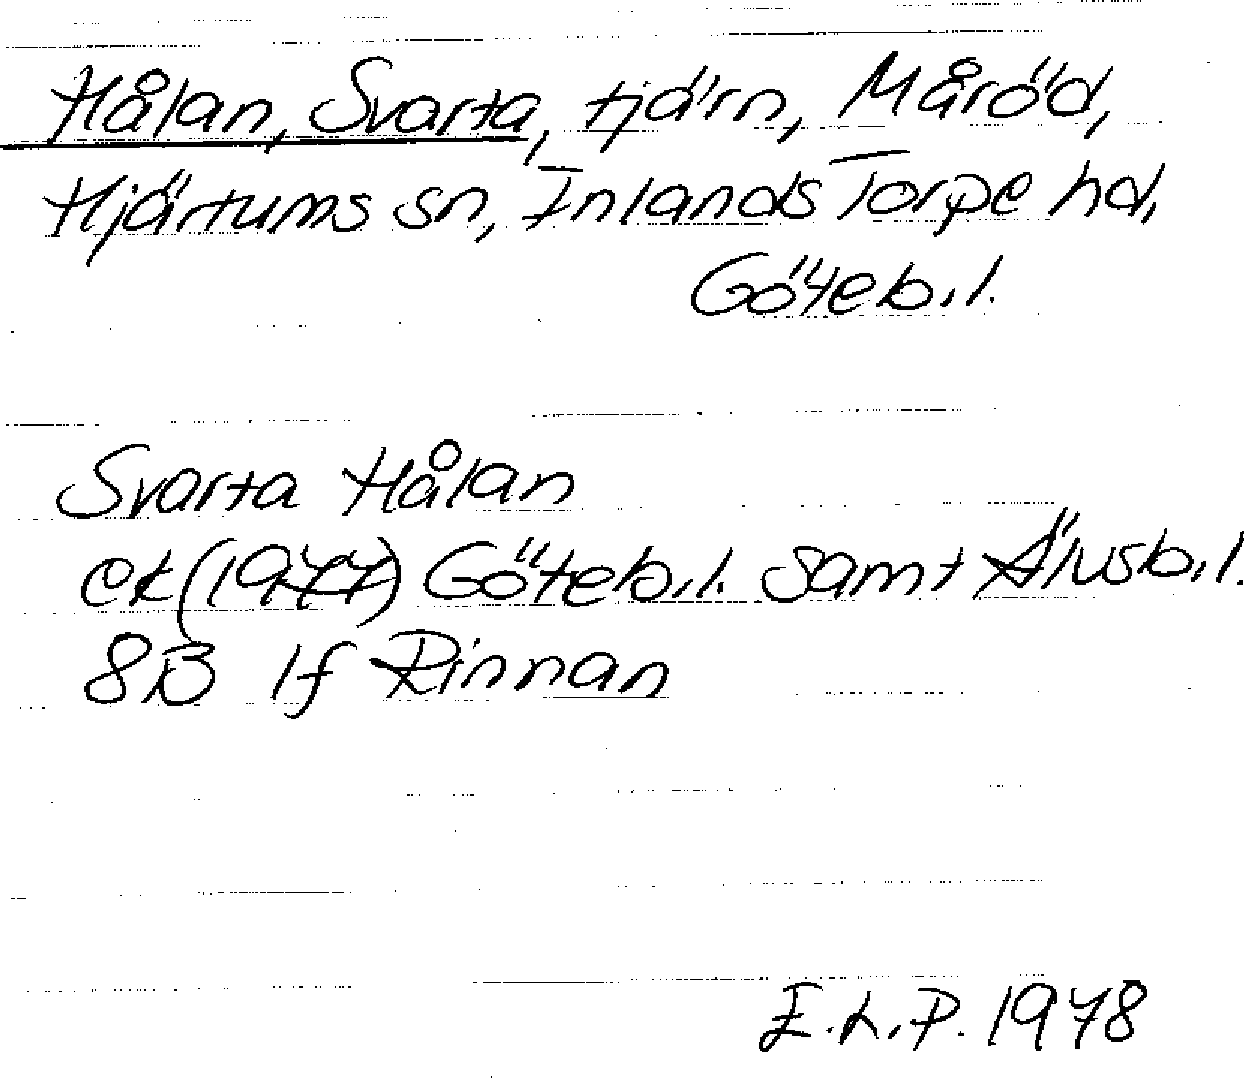 Hålan, Svarta, tjärn, Måröd,
Hjärtums sn, Inlands Torpe hd,
Göteb.l.
Svarta Hålan
ek (1977) Göteb.l. samt Älvsb.l.
8B 1f Rinnan
E.L.P. 1978